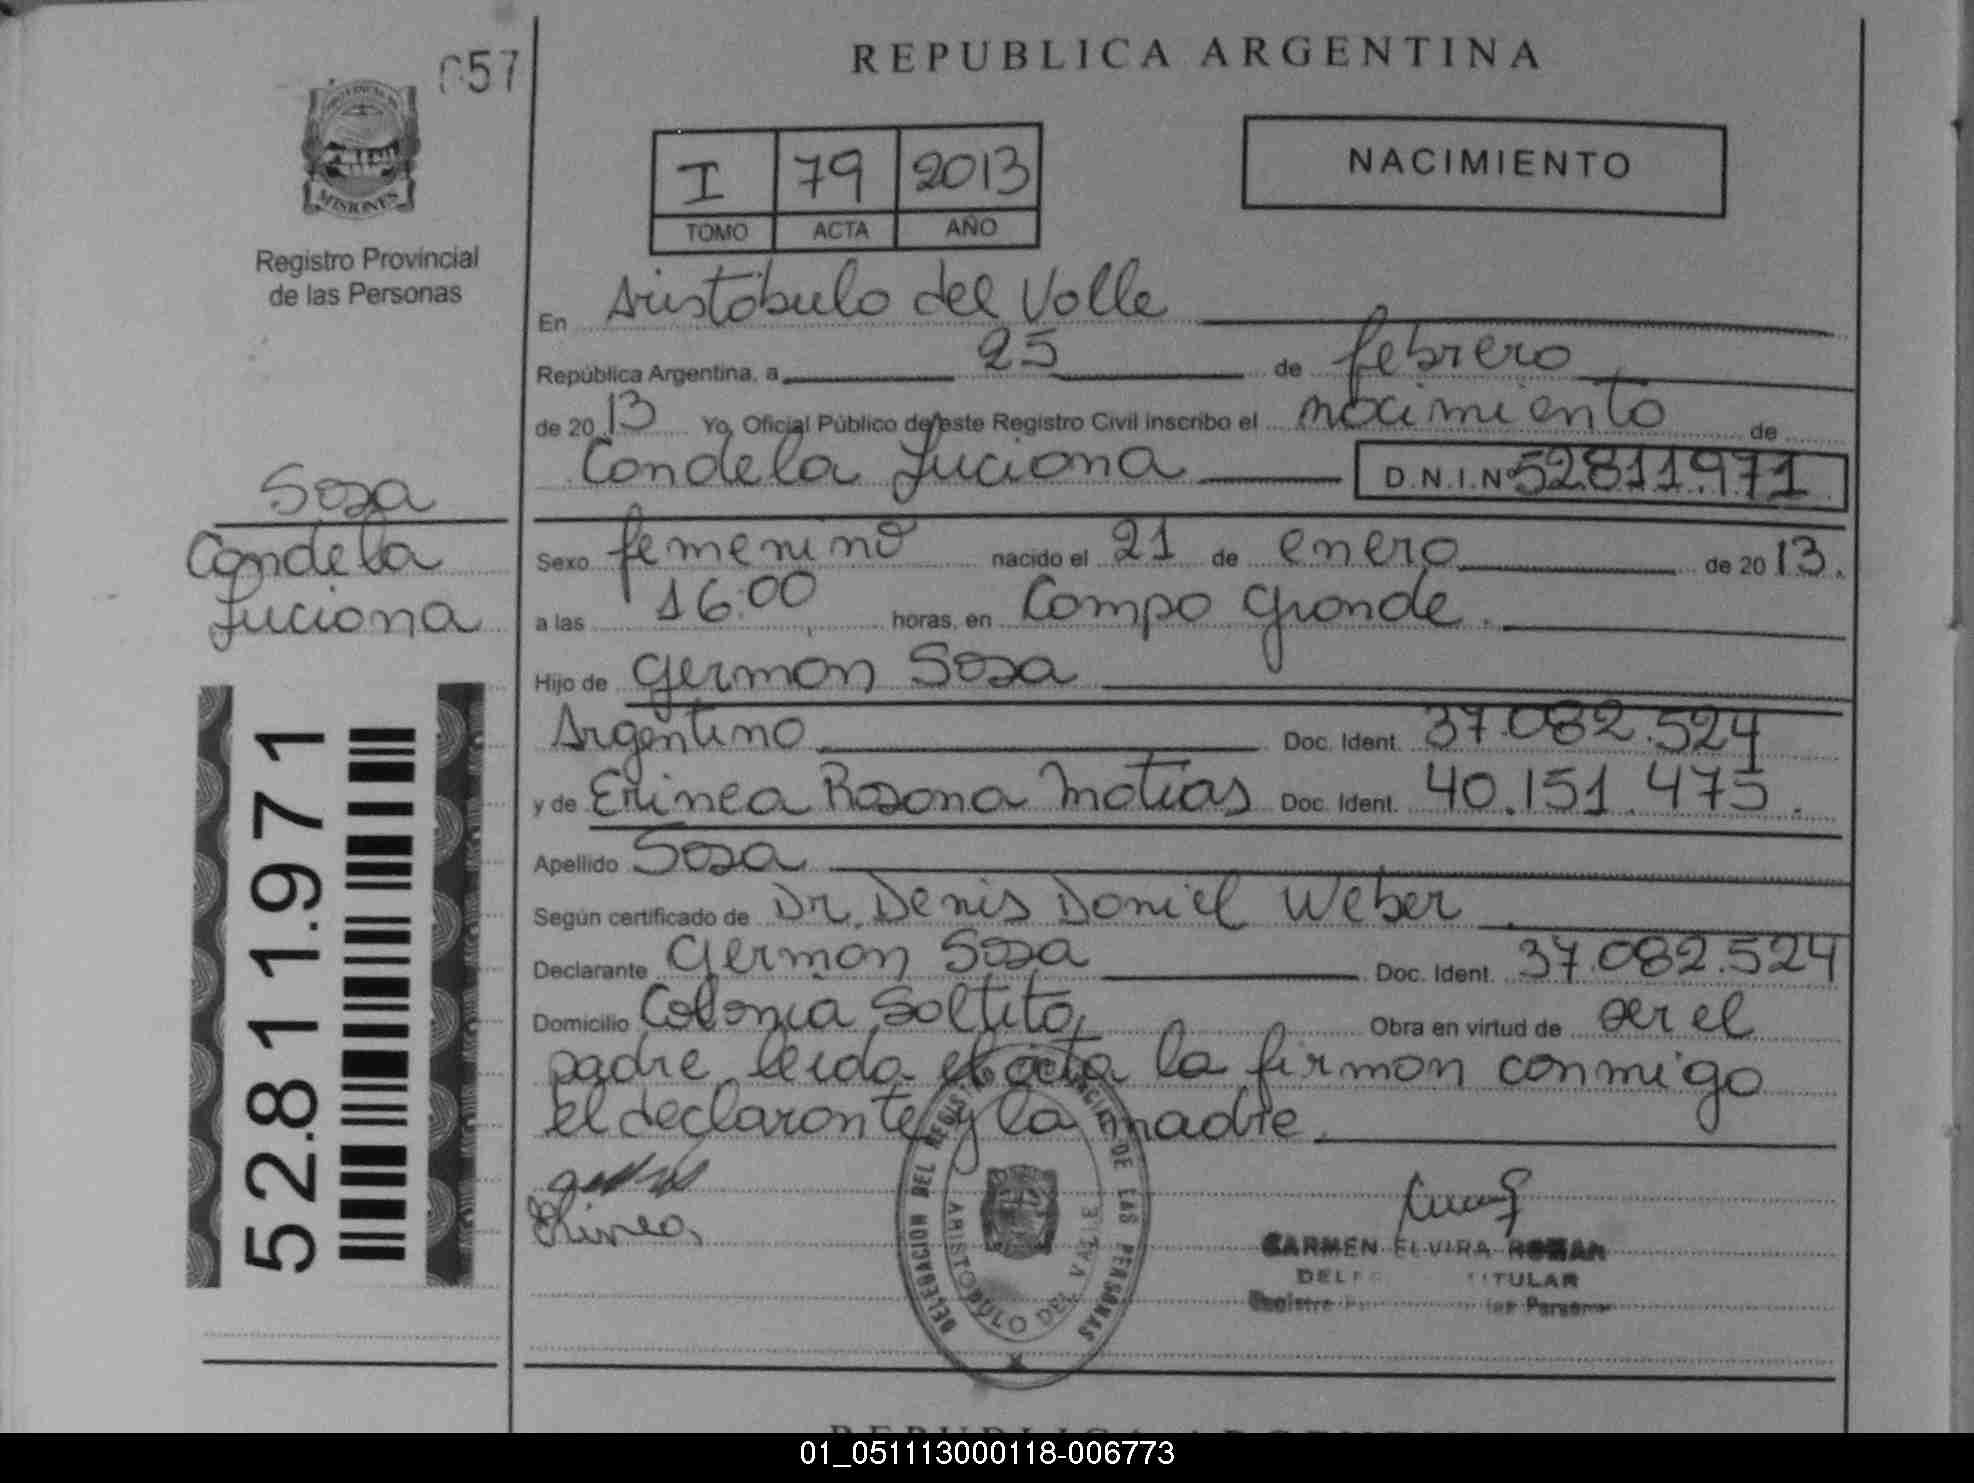 057
REPUBLICA ARGENTINA
PROVINCIA DE
MISIONES
Registro Provincial
de las Personas
I 79 2013
TOMO ACTA AÑO
NACIMIENTO
En Aristóbulo del Valle
República Argentina, a 25 de febrero
de 2013 Yo, Oficial Público de este Registro Civil inscribo el nacimiento de
Candela Luciana D.N.I.Nº 52811971
Sosa
Candela
Luciana
Sexo femenino nacido el 21 de enero de 2013.
a las 16:00 horas, en Campo Grande.
Hijo de German Sosa
Argentino Doc. Ident. 37.082.524
y de Erinea Rosana Matias Doc. Ident. 40.151.475.
Apellido Sosa
Según certificado de Dr. Denis Daniel Weber
Declarante German Sosa Doc. Ident. 37.082.524
Domicilio Colonia Saltito, Obra en virtud de ser el
padre leida el acta la firman conmigo
el declarante y la madre.
52.811.971
Erinea
DELEGACION DEL REGISTRO PROVINCIAL DE LAS PERSONAS
ARISTOBULO DEL VALLE
CARMEN ELVIRA ROMAN
TITULAR
REPUBLICA ARGENTINA
01_051113000118-006773